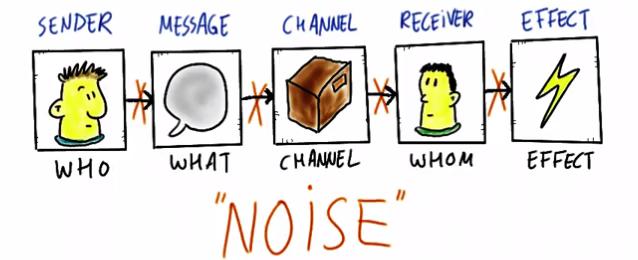 SENDER MESSAGE CHANNEL RECEIVER EFFECT
WHO WHAT CHANNEL WHOM EFFECT
"NOISE"